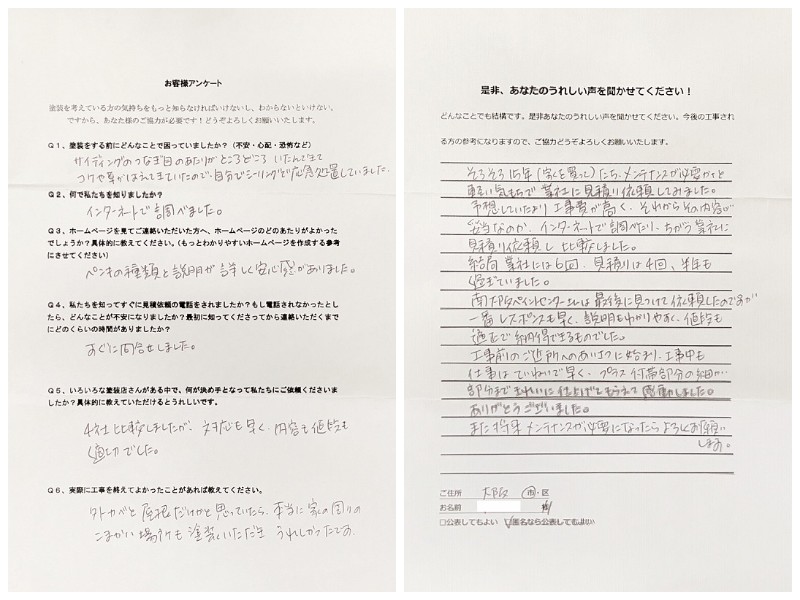 お客様アンケート
塗装を考えている方の気持ちをもっと知らなければいけないし、わからないといけない。
ですから、あなた様のご協力が必要です！どうぞよろしくお願いいたします。
Q１、塗装をする前にどんなことで困っていましたか？（不安・心配・恐怖など）
サイディングのつなぎ目のあたりがところどころ いたんできて
コケや草がはえてきていたので、自分でシーリングなど応急処置していました。
Q２、何で私たちを知りましたか？
インターネットで調べました。
Q３、ホームページを見てご連絡いただいた方へ、ホームページのどのあたりがよかった
でしょうか？具体的に教えてください。（もっとわかりやすいホームページを作成する参考
にさせてください）
ペンキの種類と説明が詳しく安心感がありました。
Q４、私たちを知ってすぐに見積依頼の電話をされましたか？もし電話されなかったとし
たら、どんなことが不安になりましたか？最初に知ってくださってから連絡いただくまで
にどのくらいの時間がありましたか？
すぐに問合せしました。
Q５、いろいろな塗装店さんがある中で、何が決め手となって私たちにご依頼くださいま
したか？具体的に教えていただけるとうれしいです。
4社比較しましたが、対応も早く、内容も値段も
適切でした。
Q６、実際に工事を終えてよかったことがあれば教えてください。
外カベと屋根だけかと思っていたら、本当に家の周りの
こまかい場所も塗装いただき うれしかったです。
是非、あなたのうれしい声を聞かせてください！
どんなことでも結構です。是非あなたのうれしい声を聞かせてください。今後の工事され
る方の参考になりますので、ご協力どうぞよろしくお願いいたします。
そろそろ15年（家を買って）たち、メンテナンスが必要かなと
軽い気もちで業社に見積り依頼してみました。
予想していたより工事費が高く、それからその内容が
妥当なのか、インターネットで調べたり、ちがう業社に
見積り依頼し比較しました。
結局 業社には6回、見積りは4回、半年も
経ぎていました。
南大阪ペイントセンターさんは最後に見つけて依頼したのですが
一番レスポンスも早く、説明もわかりやすく、値段も
適正で納得できるものでした。
工事前のご近所へのあいさつに始まり、工事中も
仕事はていねいで早く、プラス付帯部分の細かい
部分まできれいに仕上げてもらえて感動しました。
ありがとうございました。
また将来メンテナンスが必要になったらよろしくお願い
します。
ご住所 大阪 市・区
お名前 様
□公表してもよい ☑匿名なら公表してもよい